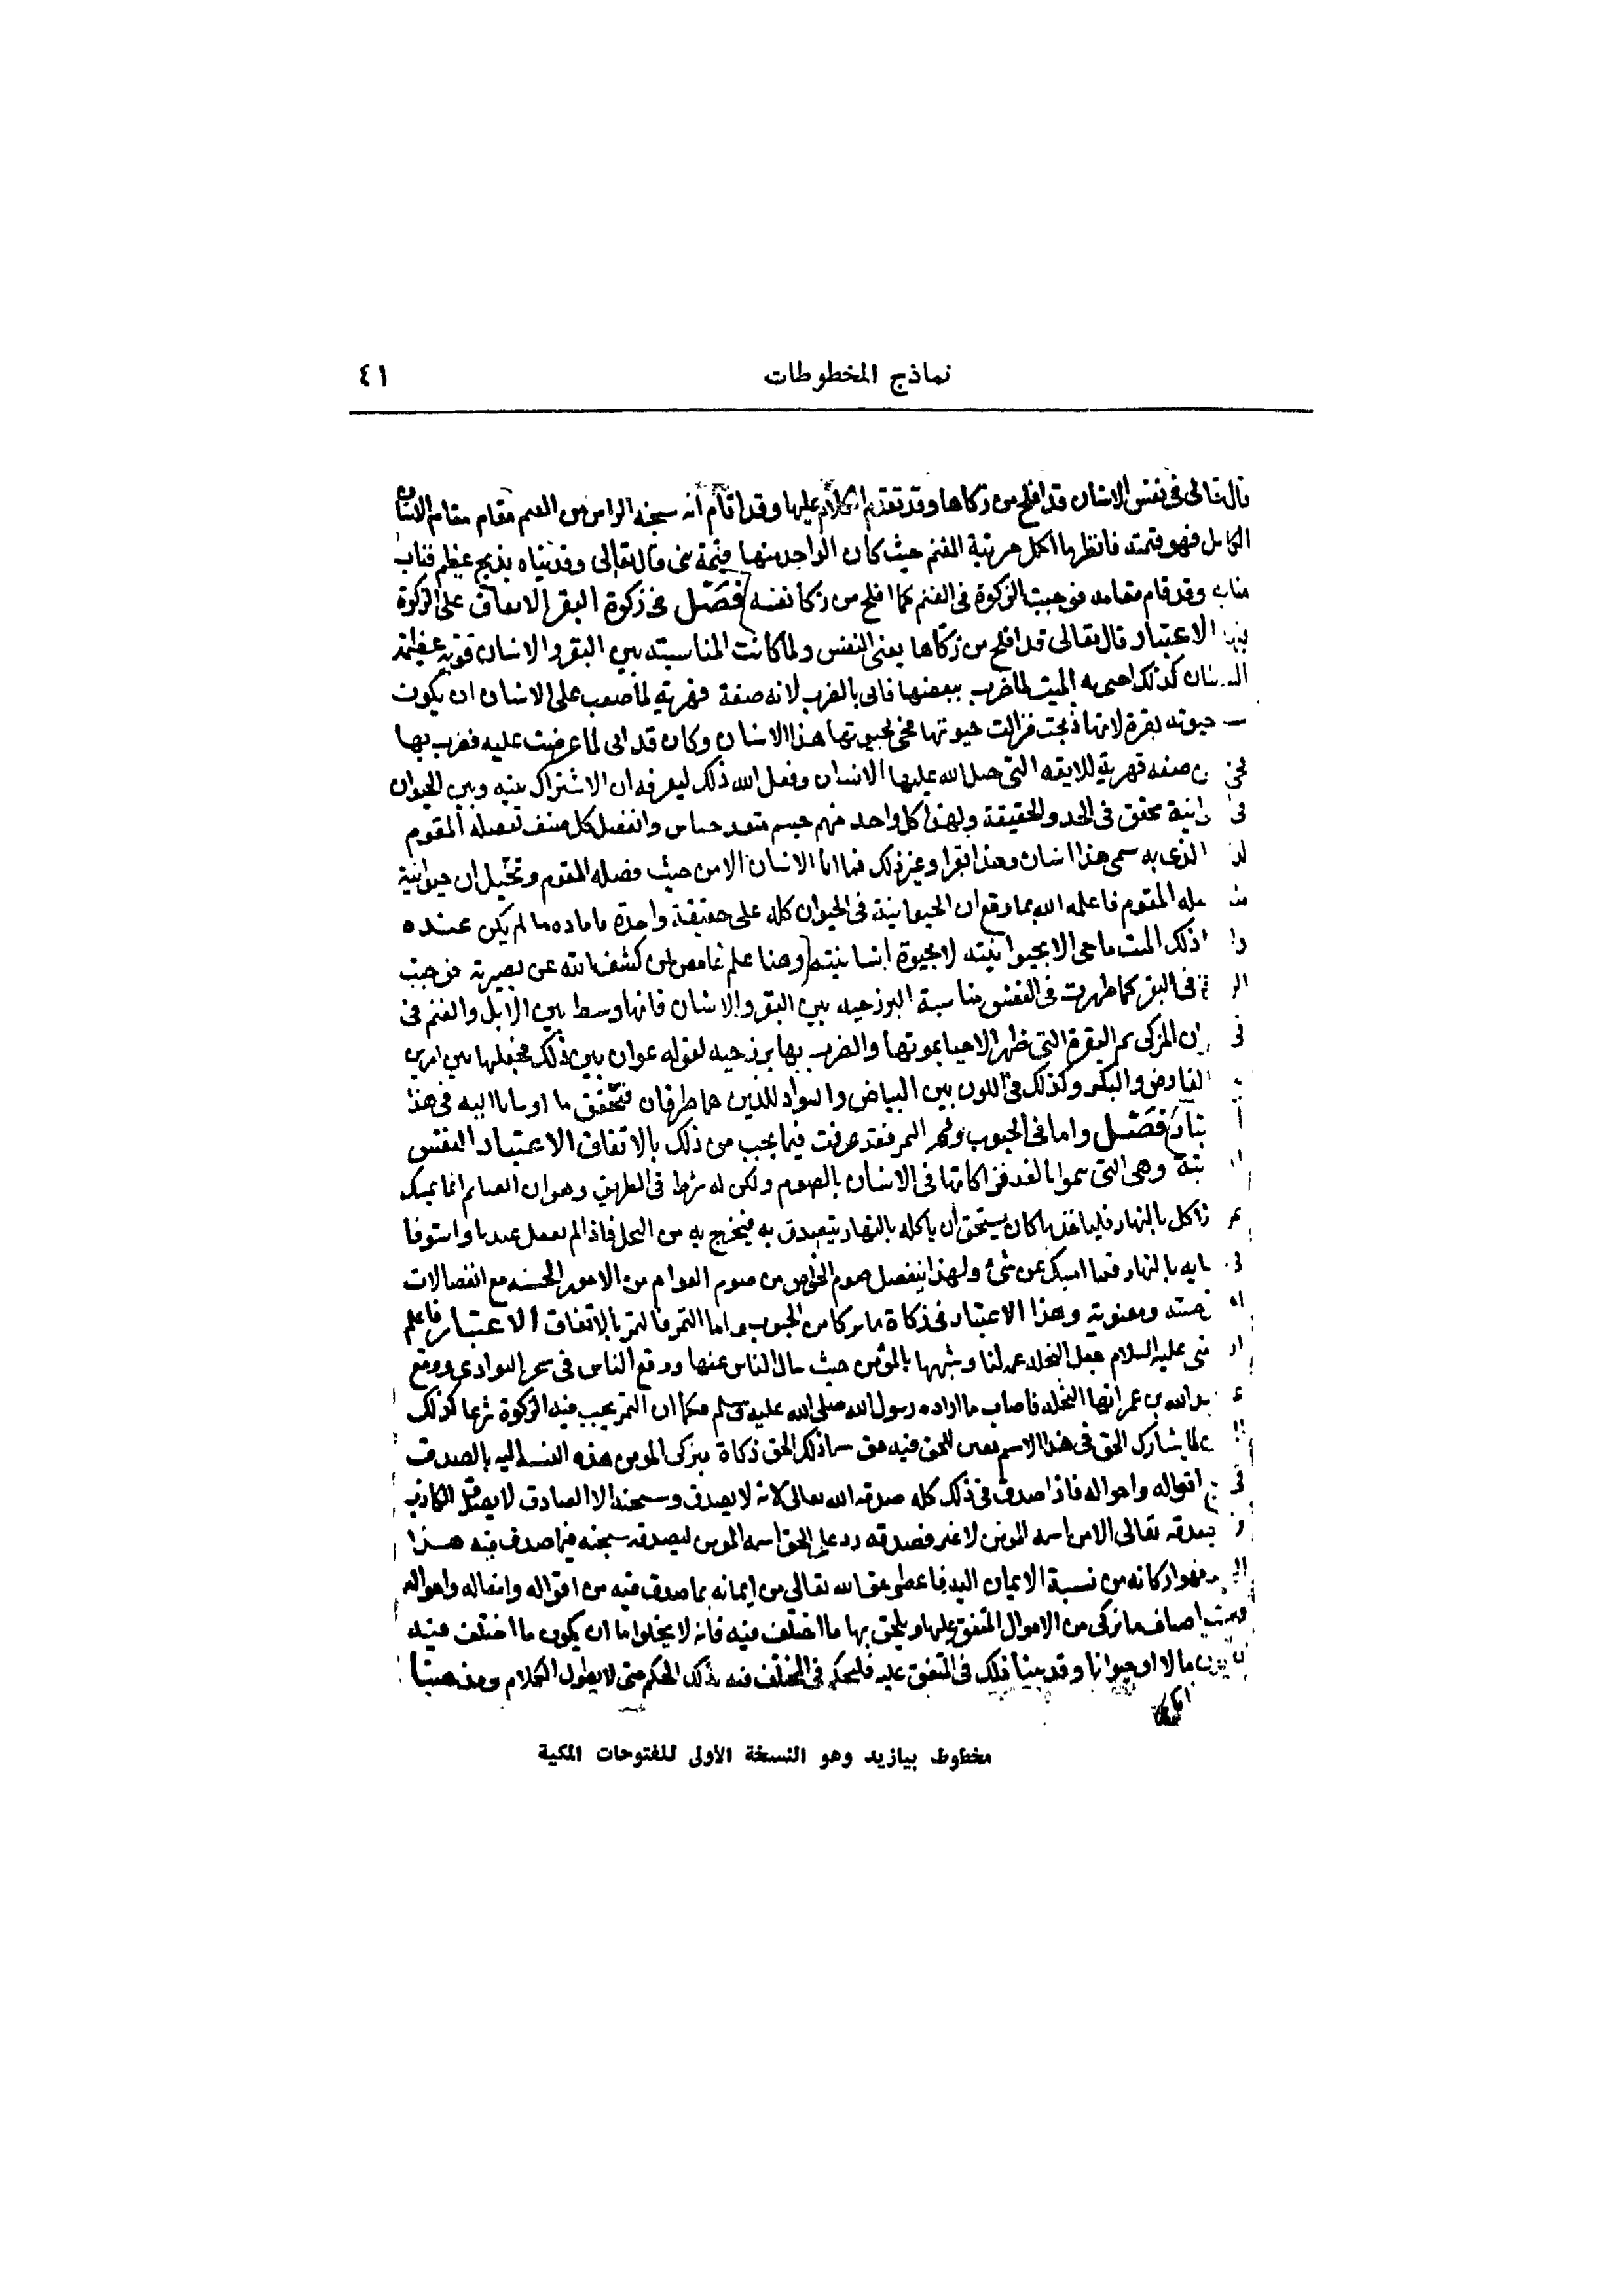 نماذج المخطوطات
٤١
قال تعالى في نفس الانسان قد افلح من زكاها وقد تقدم الكلام عليها وقد اقام انه سبحنه الراس من الغنم مقام الانسان
الكامل فهو قيمته فانظر ما اكمل مرتبة الغنم حيث كان الواحد منها قيمة نبي قال تعالى وفديناه بذبح عظيم فناب
منابه وقد قام مقامه فوجبت الزكوة في الغنم كما افلح من زكا نفسه فصل في زكوة البقر الاتفاق على الزكوة
فيها الاعتبار قال تعالى قد افلح من زكاها يعني النفس ولما كانت المناسبة بين البقر والانسان قوية عظيمة
السلطان كذلك احيي به الميت لما ضرب ببعضها فاتى بالضرب لانه صفة قهرية لما صعب على الانسان ان يكون
حيوته بقرة لانها ذبحت فزالت حيوتها فحيي بحيوتها هذا الانسان وكان قد ابى لما عرضت عليه فضرب بها
ن صفه قهرية للانفه التي جبل الله عليها الانسان وفعل الله ذلك ليعرفه ان الاشتراك بينه وبين الحيوان
في انية محقق في الحد والحقيقة ولهذا كل واحد منهم جسم متغذ حساس وانفصل كل صنف بفصله المقوم
الذي به سمى هذا انسان وهذا بقرا وغير ذلك فما ابا الانسان الا من حيث فصله المقوم وتخيل ان حيوانية
مثله المقوم فاعلمه الله بما وقع ان الحيوانية في الحيوان كله على حقيقة واحدة فافاده ما لم يكن عنده
وا ذلك الميت ما حي الا بحيوانيته لا بحيوة انسانيته وهنا علم غامض لمن كشف الله عن بصيرته فوجبت
الز ة في البقر كما ظهرت في النفس مناسبة البرزخية بين البقر والانسان فانها وسط بين الابل والغنم في
ان المزكى ثم البقرة التي ظهر الاحيا بموتها والضرب بها برزخيه لقوله عوان بين ذلك فجعلها بين امرين
الفارض والبكر وكذلك في اللون بين البياض والسواد للذين هما طرفان فتحقق ما اومانا اليه في هذا
فصل واما في الحبوب والتمر فقد عرفت فيما يجب من ذلك بالاتفاق الاعتبار النفس
تية وهي التي تنمو بالغذا فزكاتها في الانسان بالصوم ولكن له شرط في الطريق وهو ان الصايم انما يمسك
عن الاكل بالنهار فليا خذ ما كان يستحق ان ياكله بالنهار يتصدق به فيخرج به من البخل فاذا لم يفعل عندنا واستوفا
في ايه بالنهار فما امسك عن شئ ولهذا ينفصل صوم الخواص من صوم العوام من الامور الحسيه مع انفصالات
معنوية وهذا الاعتبار في زكاة ما يزكا من الحبوب واما التمر فالتمر بالاتفاق الاعتبار فاعلم
ان النبي عليه السلام جعل النخله عمه لنا وشبهها بالمؤمن حيث سال الناس عنها ووقع الناس في شجر البوادي ووقع
عبد الله بن عمر انها النخلة فاصاب ما اراده رسول الله صلى الله عليه وسلم فكما ان التمر يجب فيه الزكوة شرعا كذلك
لما يشارك الحق في هذا الاسم تعين للحق فيه حق سما ذلك الحق زكاة فيزكى المومن هذه النسبة اليه بالصدق
في اقواله واحواله فاذا صدق في ذلك كله صدقه الله تعالى لانه لا يصدق سبحنه الا الصادق لا يصدق الكاذب
و يصدقه تعالى الا من اسمه المومن لا غير فصدقه رد على الحق اسمه المومن ليصدقه سبحنه فيما صدق فيه هذا
فهو زكاته من نسبة الايمان اليه فاعطى حق الله تعالى من ايمانه بما صدق فيه من اقواله وافعاله واحواله
اصناف ما يزكى من الاموال المتفق عليها ويلحق بها ما اختلف فيه فانه لا يخلو اما ان يكون ما اختلف فيه
مالا او حيوانا وقد بينا ذلك في المتفق عليه فليحكم في المختلف فيه بذلك الحكم حتى لا يطول الكلام ومذهبنا
مخطوط بيازيد وهو النسخة الأولى للفتوحات المكية